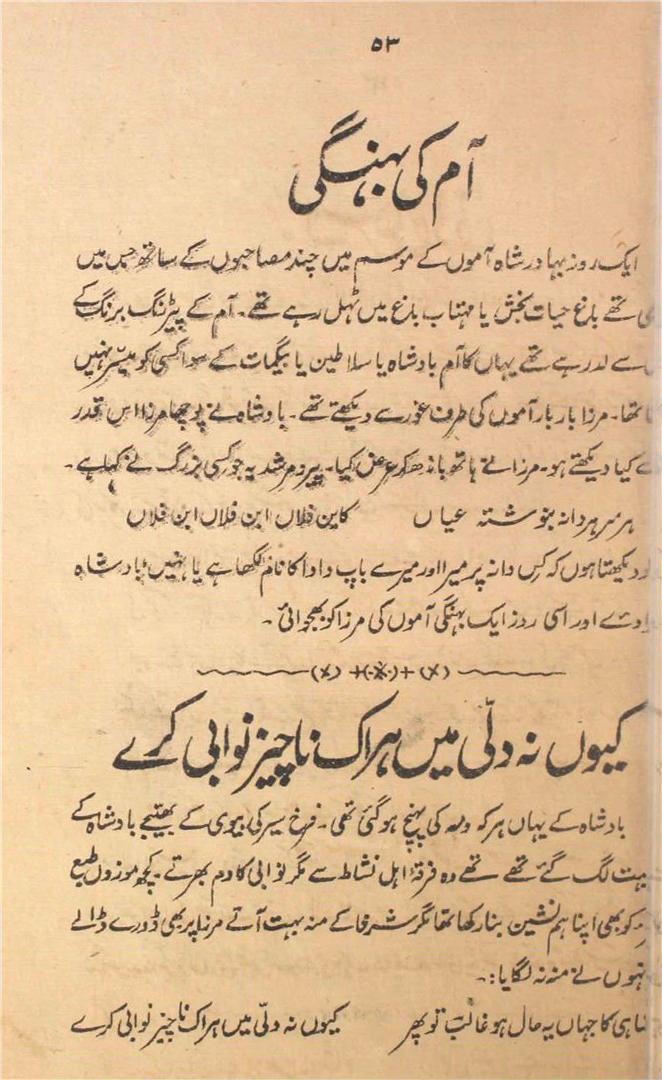 ۵۳
آم کی بہنگی
ایک روز بہادر شاہ آموں کے موسم میں چند مصاحبوں کے ساتھ جس میں
تھے باغ حیات بخش یا مہتاب باغ میں ٹہل رہے تھے۔ آم کے پیڑ رنگ برنگ کے
سے لد رہے تھے یہاں کا آم بادشاہ یا سلاطین یا بیگمات کے سوا کسی کو میسّر نہیں
تھا۔ مرزا بار بار آموں کی طرف غور سے دیکھتے تھے۔ بادشاہ نے پوچھا مرزا اس قدر
کیا دیکھتے ہو۔ مرزا نے ہاتھ باندھ کر عرض کیا۔ پیر و مرشد یہ جو کسی بزرگ نے کہا ہے۔
ہر سر ہر دانہ بنوشتہ عیاں کاین فلاں ابن فلاں ابن فلاں
دیکھتا ہوں کہ کس دانہ پر میرا اور میرے باپ دادا کا نام لکھا ہے یا نہیں؛ بادشاہ
اور اسی روز ایک بہنگی آموں کی مرزا کو بھجوائی۔
(×)+(·×·)+(×)
کیوں نہ دلّی میں ہر اک ناچیز نوابی کرے
بادشاہ کے یہاں ہر کہ ومہ کی پہنچ ہو گئی تھی۔ فرخ سیر کی بیوی کے بھتیجے بادشاہ کے
لگ گئے تھے تھے وہ فرقۂ اہل نشاط سے مگر نوابی کا دم بھرتے۔ کچھ موزوں طبع
کو بھی اپنا ہم نشین بنا رکھا تھا مگر شرفا کے منہ بہت آتے مرزا پر بھی ڈورے ڈالے
نے منہ نہ لگایا:۔
کا جہاں یہ حال ہو غالب تو پھر کیوں نہ دلّی میں ہر اک ناچیز نوابی کرے